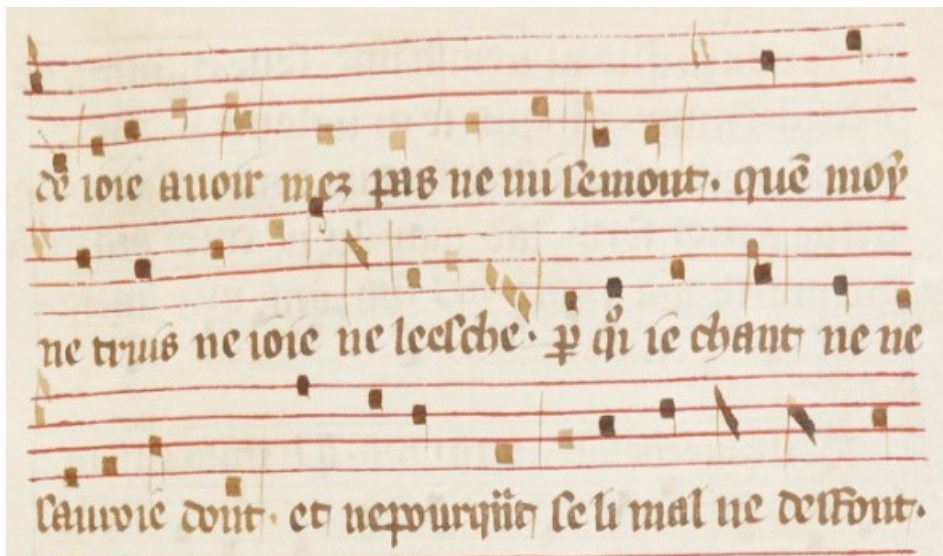 de ioie auoir mez pas ne mi semont. quē moy
ne truis ne ioie ne leesche. ꝑ qͦi ie chant ne ne
sauroie dont. et nepourqͣt se li mal ne deffont.